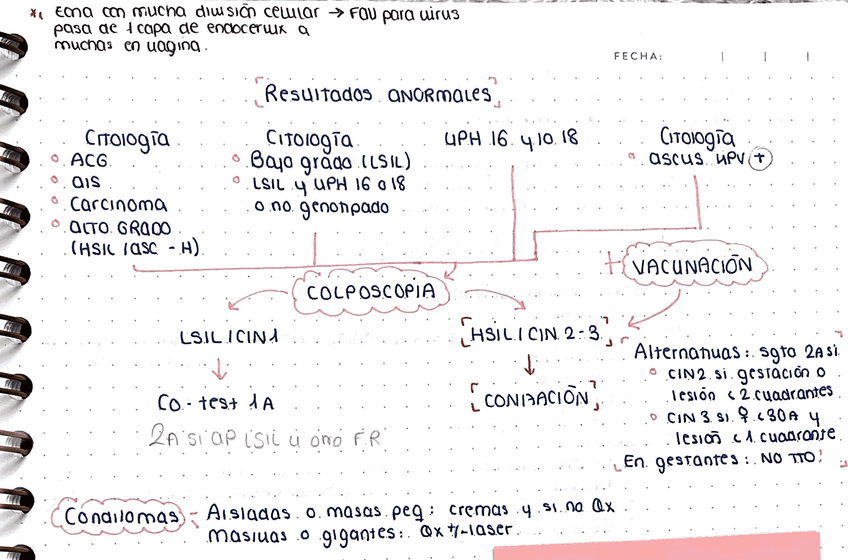 *₁ Zona con mucha división celular → FAV para virus
pasa de 1 capa de endocérvix a
muchas en vagina.
FECHA:
[Resultados ANORMALES]
Citología
○ ACG
○ AIS
○ Carcinoma
○ ALTO GRADO
(HSIL/ASC-H)
Citología
○ Bajo grado (LSIL)
○ LSIL y VPH 16 o 18
o no genotipado
VPH 16 y/o 18
Citología
○ ASCUS HPV (+)
+ VACUNACIÓN
COLPOSCOPIA
LSIL/CIN1
↓
Co-test 1A
2A si AP LSIL u otro F.R
[HSIL/CIN 2-3]
↓
[CONIZACIÓN]
Alternativas: sgto 2A si
○ CIN2 si gestación o
lesión <2 cuadrantes
○ CIN 3 si ♀ <30A y
lesión <1 cuadrante
En gestantes: NO TTO!
Condilomas - Aisladas o masas peq: cremas y si no Qx
masivas o gigantes: Qx +/- laser